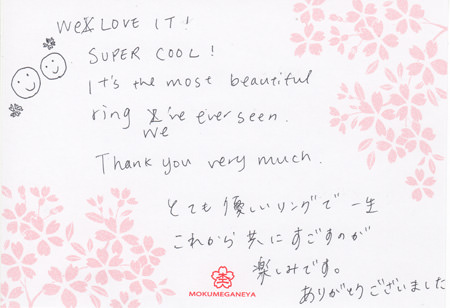 We LOVE IT!
SUPER COOL!
It's the most beautiful
ring we've ever seen.
Thank you very much.
とても優しいリングで一生
これから共にすごすのが
楽しみです。
ありがとうございました
MOKUMEGANEYA